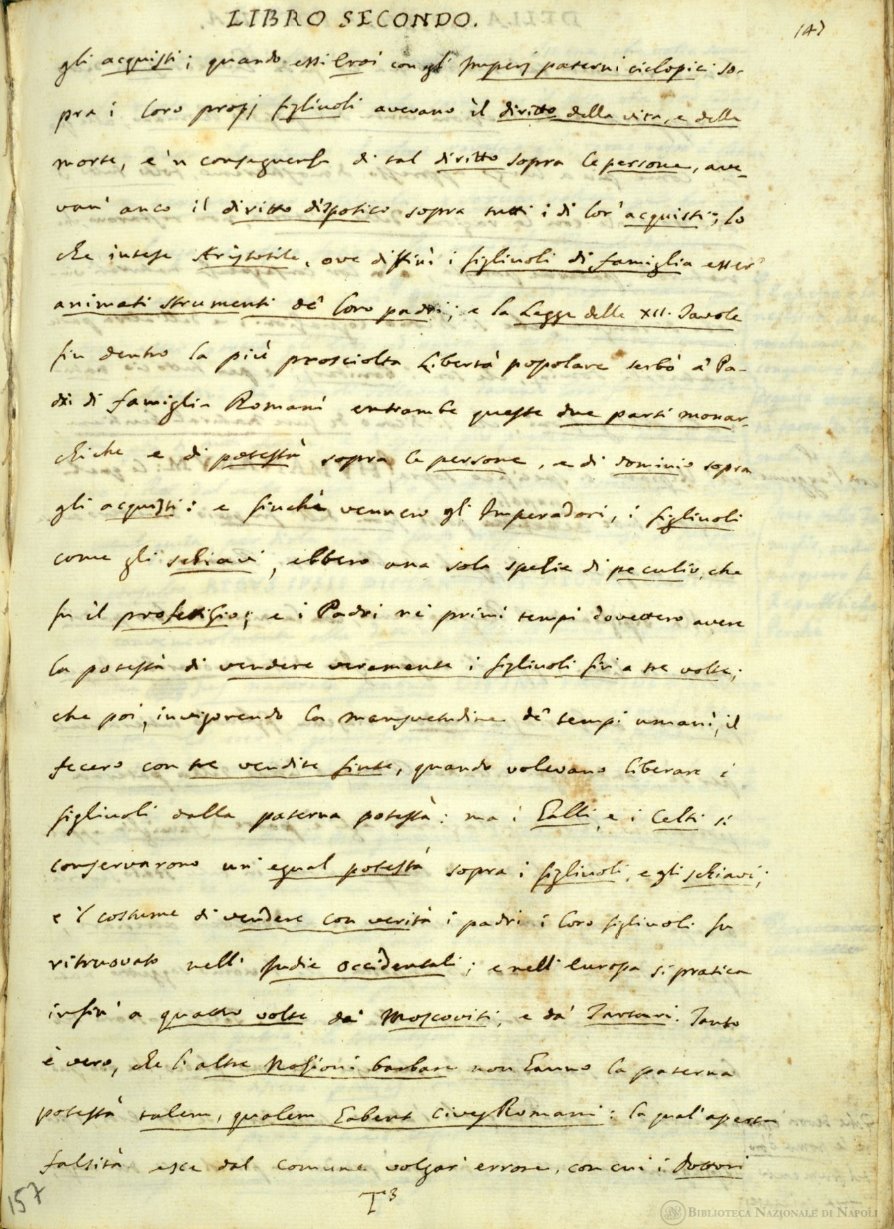 LIBRO SECONDO.
147
gli acquisti; quando essi Eroi con gl' Imperj paterni ciclopici so-
pra i loro propj figliuoli avevano il diritto della vita, e della
morte, e 'n conseguenza di tal diritto sopra le persone, ave-
van' anco il diritto dispotico sopra tutti i di lor' acquisti; lo
che intese Aristotile, ove diffinì i figliuoli di famiglia esser'
animati strumenti de' loro padri; e la Legge delle XII. Tavole
fin dentro la più prosciolta Libertà popolare serbò a' Pa-
dri di famiglia Romani entrambe queste due parti monar-
chiche e di potestà sopra le persone, e di dominio sopra
gli acquisti: e finchè vennero gl' Imperadori, i figliuoli
come gli schiavi, ebbero una sola spezie di peculio, che
fu il profettizio; e i Padri ne' primi tempi dovettero avere
la potestà di vendere veramente i figliuoli fin a tre volte;
che poi, invigorendo la mansuetudine de' tempi umani, il
fecero con tre vendite finte, quando volevano liberare i
figliuoli dalla paterna potestà: ma i Galli, e i Celti si
conservarono un' egual potestà sopra i figliuoli, e gli schiavi;
e 'l costume di vendere con verità i padri i loro figliuoli fu
ritruovato nell' Indie Occidentali; e nell' Europa si pratica
infin' a quattro volte da' Moscoviti, e da' Tartari. Tanto
è vero, che l' altre Nazioni barbare non hanno la paterna
potestà talem, qualem habent cives Romani: la qual' aperta
falsità esce dal comune volgar' errore, con cui i Dottori
T 3
157
BIBLIOTECA NAZIONALE DI NAPOLI